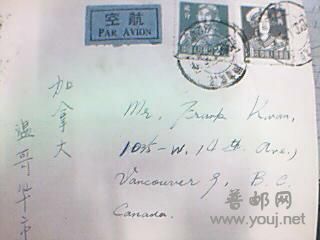 空航
PAR AVION
加拿大
温哥华市
Mr. Frank Kwan,
1035-W. 14th Ave.,
Vancouver 9, B.C.
Canada.
普邮网
www.youj.net